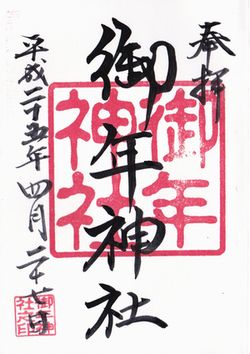 奉拝
御年神社
御年神社
平成二十五年四月二十七日
御年神社之印